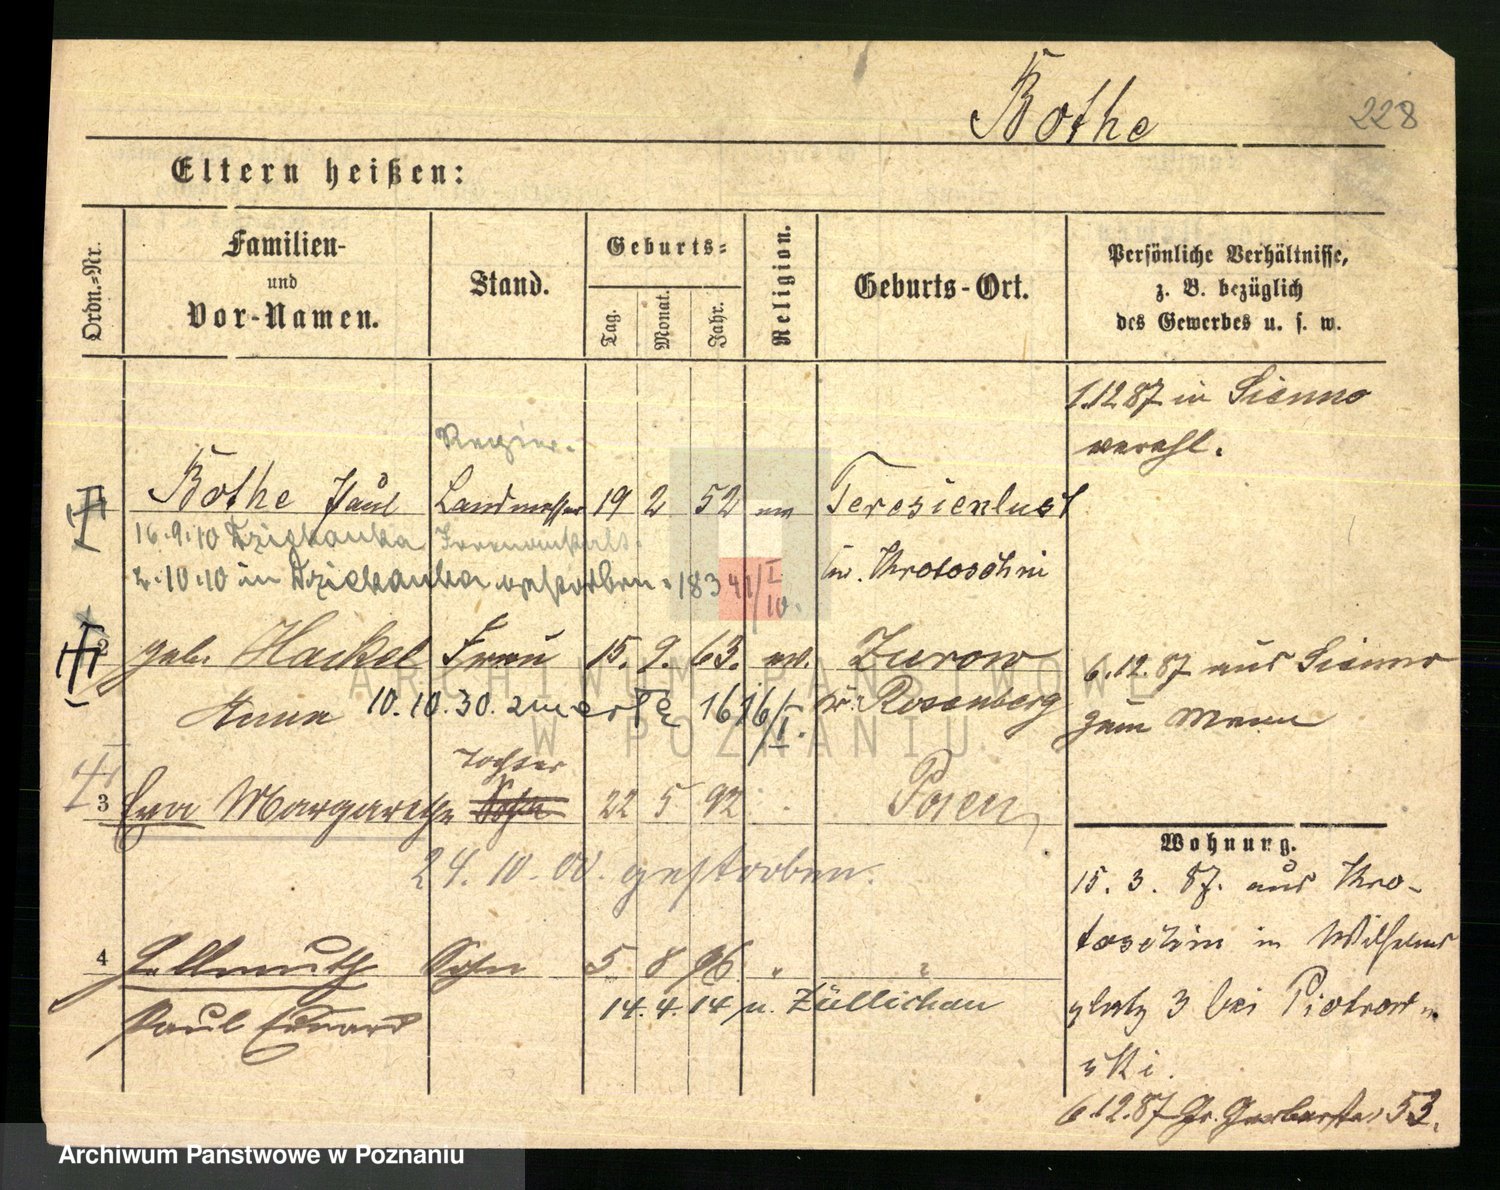 Bothe 228
Eltern heißen:
Ordn.-Nr.
Familien-
und
Vor-Namen.
Stand.
Geburts-
Tag.
Monat.
Jahr.
Religion.
Geburts-Ort.
Persönliche Verhältnisse,
z. B. bezüglich
des Gewerbes u. s. w.
1.12.87 in Sienno
verehl.
Regier.
Bothe Paul Landmesser 19 2 52 ev Teresienlust
16.9.10 Dziekanka Irrenanstalt.
2.10.10 in Dziekanka verstorben. 1834 I/10. Kr. Krotoschin
2 geb. Hackel Frau 15. 9. 63. ev. Zurow 6.12.87 aus Sienno
Anna 10.10.30. 1616/I. Kr. Rosenberg zum Mann
Tochter
3 Eva Margarethe Sohn 22 5 92 Posen
24.10.00. gestorben.
4 Hellmuth Sohn 5 8 96. " "
Paul Eduard 14.4.14 n. Züllichau
Wohnung.
15. 3. 87. aus Kro-
toschin in Wilhelms
platz 3 bei Piotrow
ski.
6.12.87 Gr. Gerberstr. 53.
ARCHIWUM PAŃSTWOWE
W POZNANIU
Archiwum Państwowe w Poznaniu